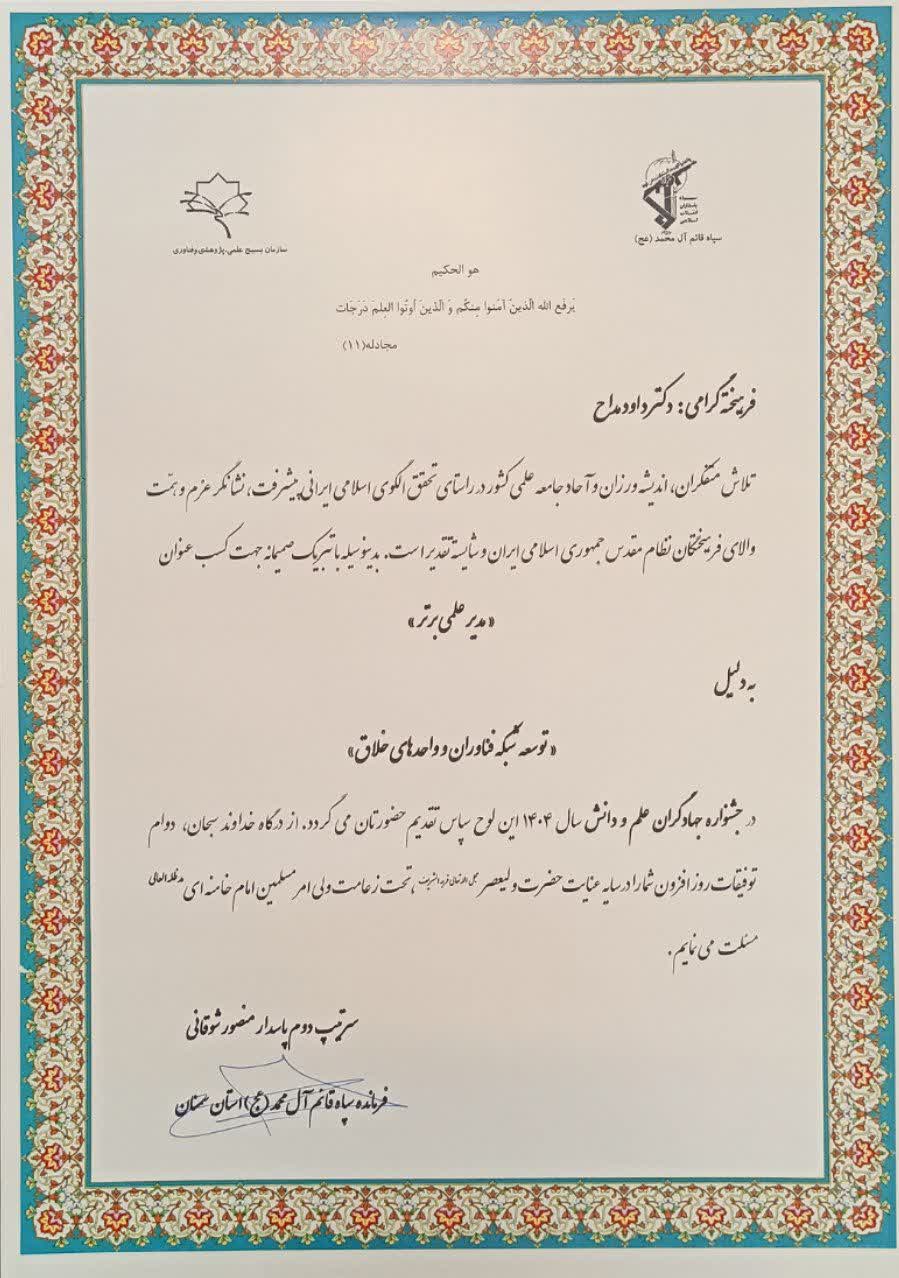 سپاه
پاسداران
انقلاب
اسلامی
سپاه قائم آل محمد (عج)
سازمان بسیج علمی، پژوهشی و فناوری
هو الحکیم
یَرفَع الله الَّذینَ آمَنوا مِنکُم وَ الَّذینَ اُوتُوا العِلمَ دَرَجَات
مجادله(۱۱)
فرهیخته گرامی: دکتر داود مداح
تلاش متفکران، اندیشه ورزان و آحاد جامعه علمی کشور در راستای تحقق الگوی اسلامی ایرانی پیشرفت، نشانگر عزم و همّت
والای فرهیختگان نظام مقدس جمهوری اسلامی ایران و شایسته تقدیر است. بدینوسیله با تبریک صمیمانه جهت کسب عنوان
«مدیر علمی برتر»
به دلیل
«توسعه شبکه فناوران و واحدهای خلاق»
در جشنواره جهادگران علم و دانش سال ۱۴۰۴ این لوح سپاس تقدیم حضورتان می گردد. از درگاه خداوند سبحان، دوام
توفیقات روز افزون شما را در سایه عنایات حضرت ولیعصر عجل الله تعالی فرجه الشریف، تحت زعامت ولی امر مسلمین امام خامنه ای مدظله العالی
مسئلت می نمایم.
سرتیپ دوم پاسدار منصور شوقانی
فرمانده سپاه قائم آل محمد (عج) استان سمنان